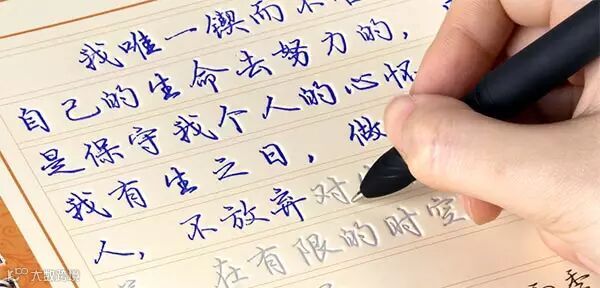 我唯一锲而不
自己的生命去努力的，
是保守我个人的心怀
我有生之日，做
人，不放弃对
在有限的时空
大数跨境